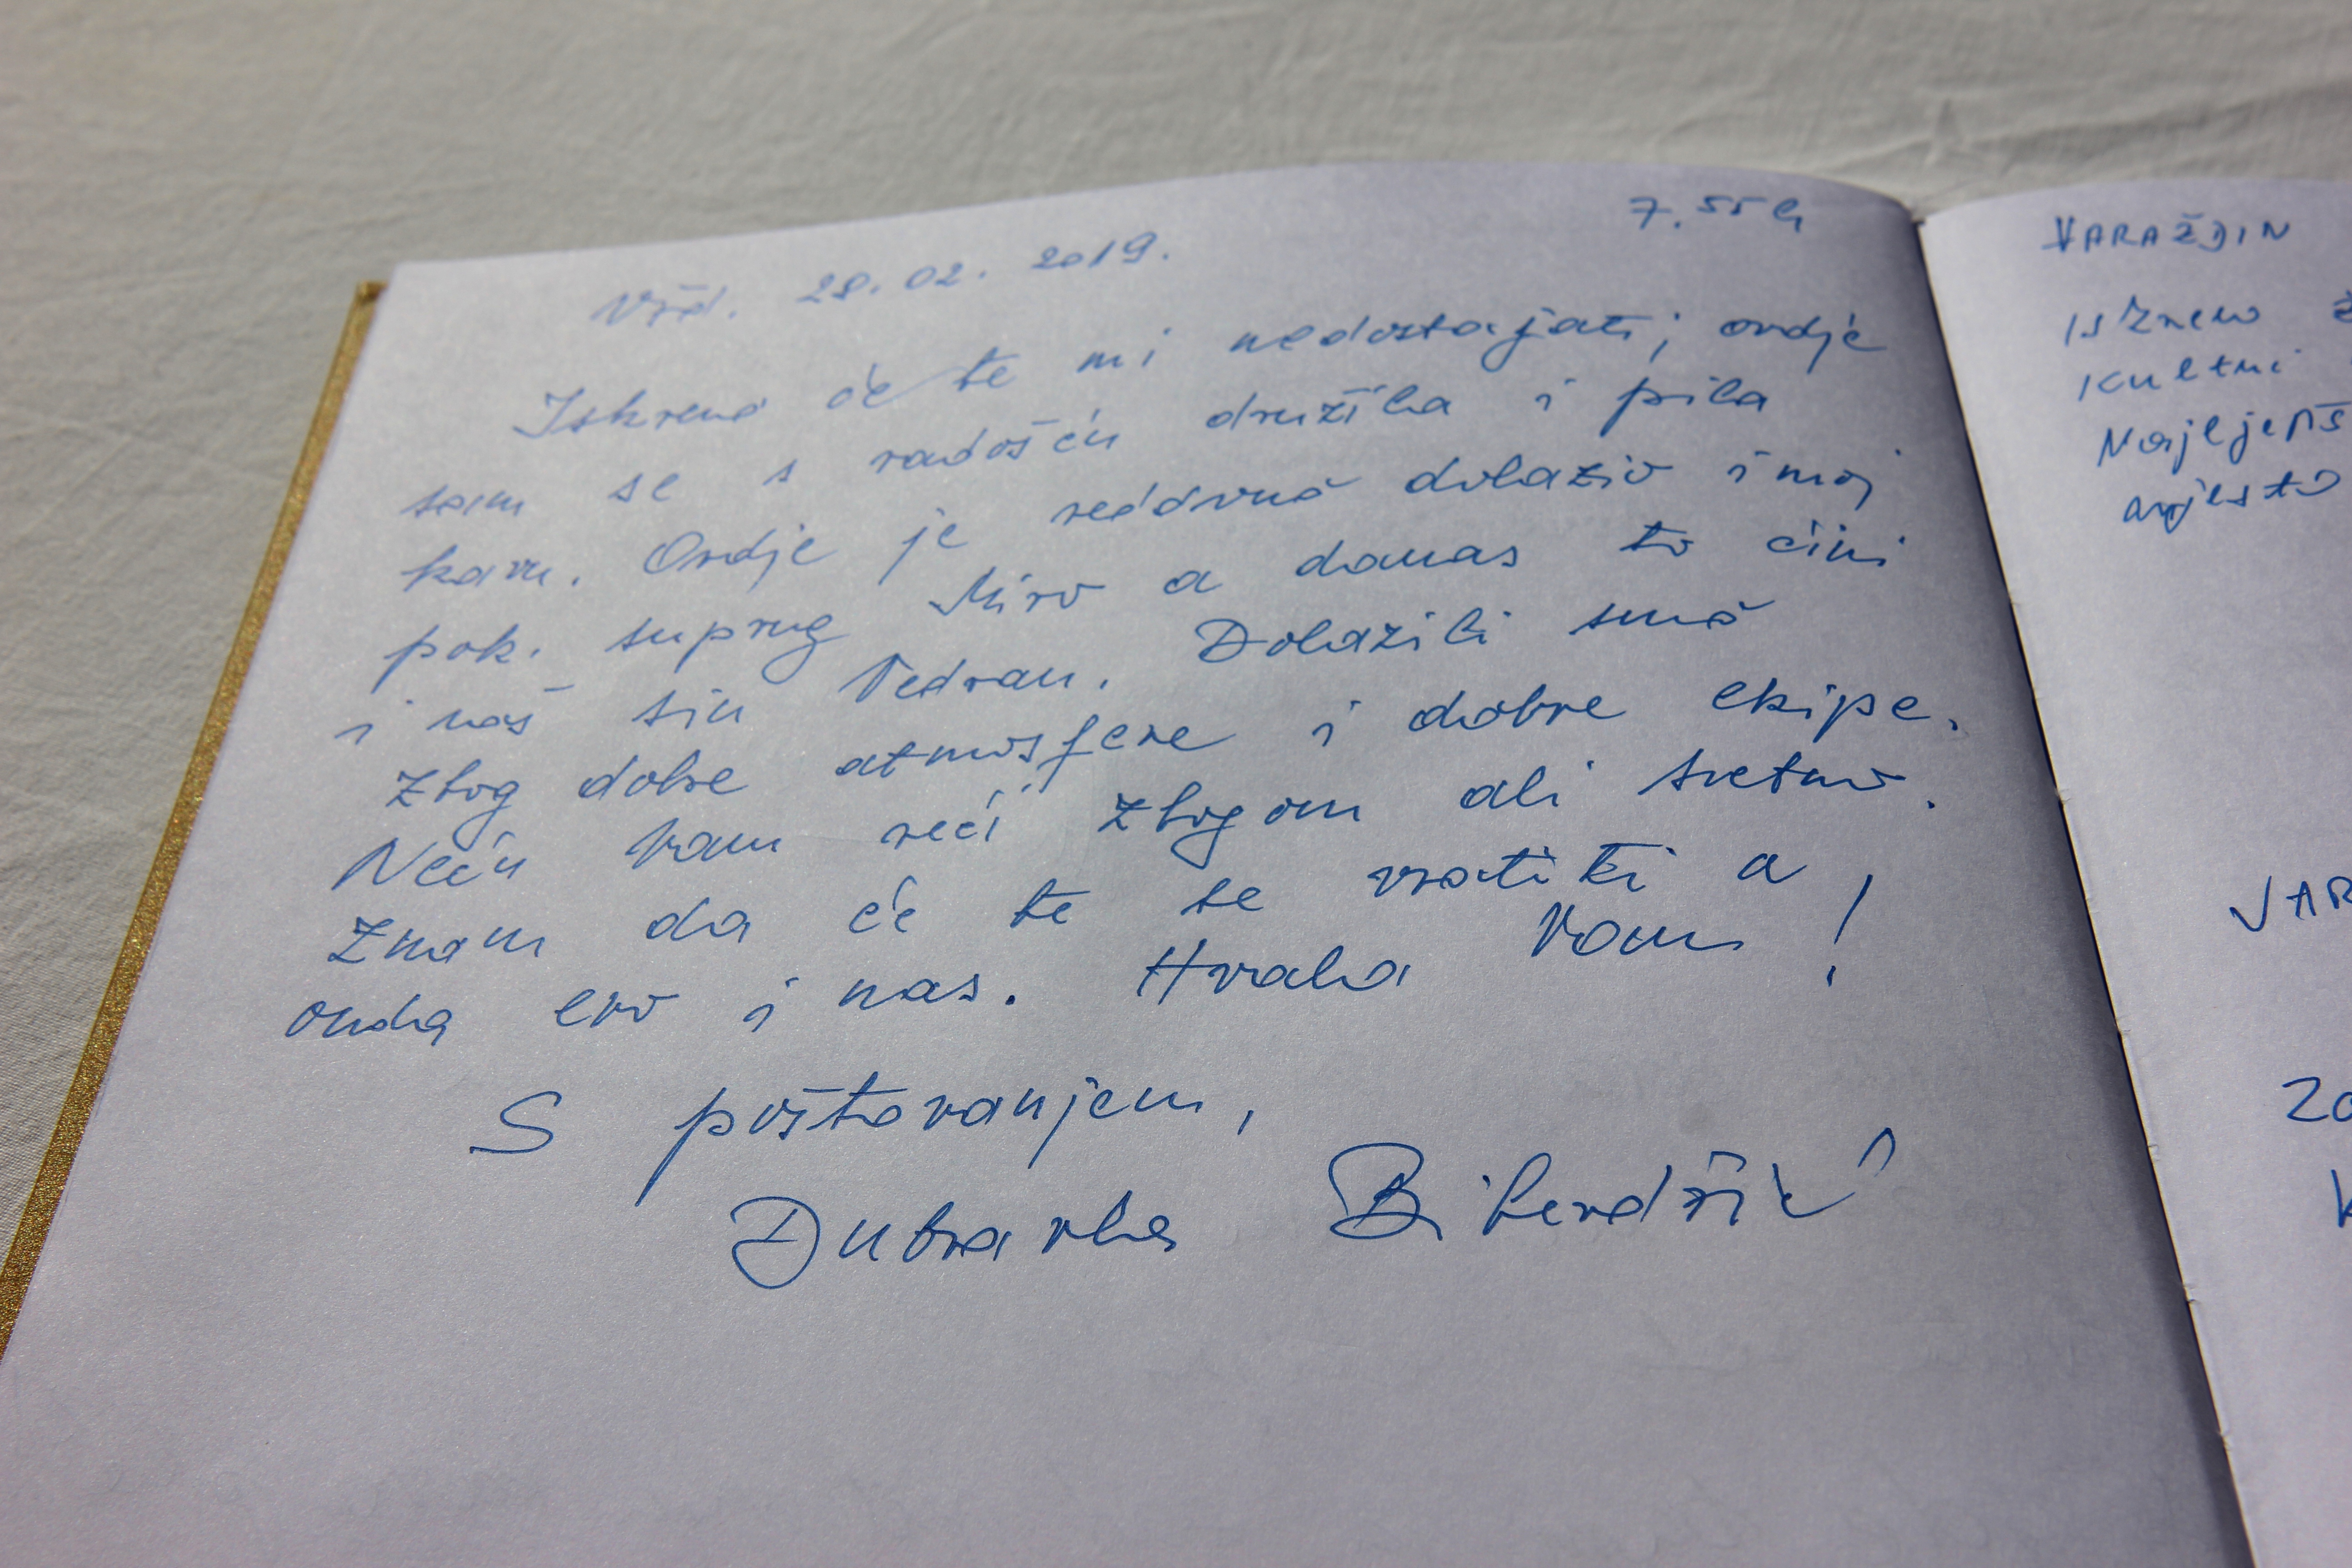 Vžd. 28.02.2019. 7.55h
Iskreno će te mi nedostajati; ovdje
sam se s radošću družila i pila
kavu. Ovdje je redovno dolazio i moj
pok. suprug Miro a danas to čini
i naš sin Vedran. Dolazili smo
zbog dobre atmosfere i dobre ekipe.
Neću Vam reći zbogom ali sretno.
Znam da će te se vratiti a
onda evo i nas. Hvala Vam!
S poštovanjem,
Dubravka
VARAŽDIN
Iskreno
Kultni
Najljepš
mjesto
VAR